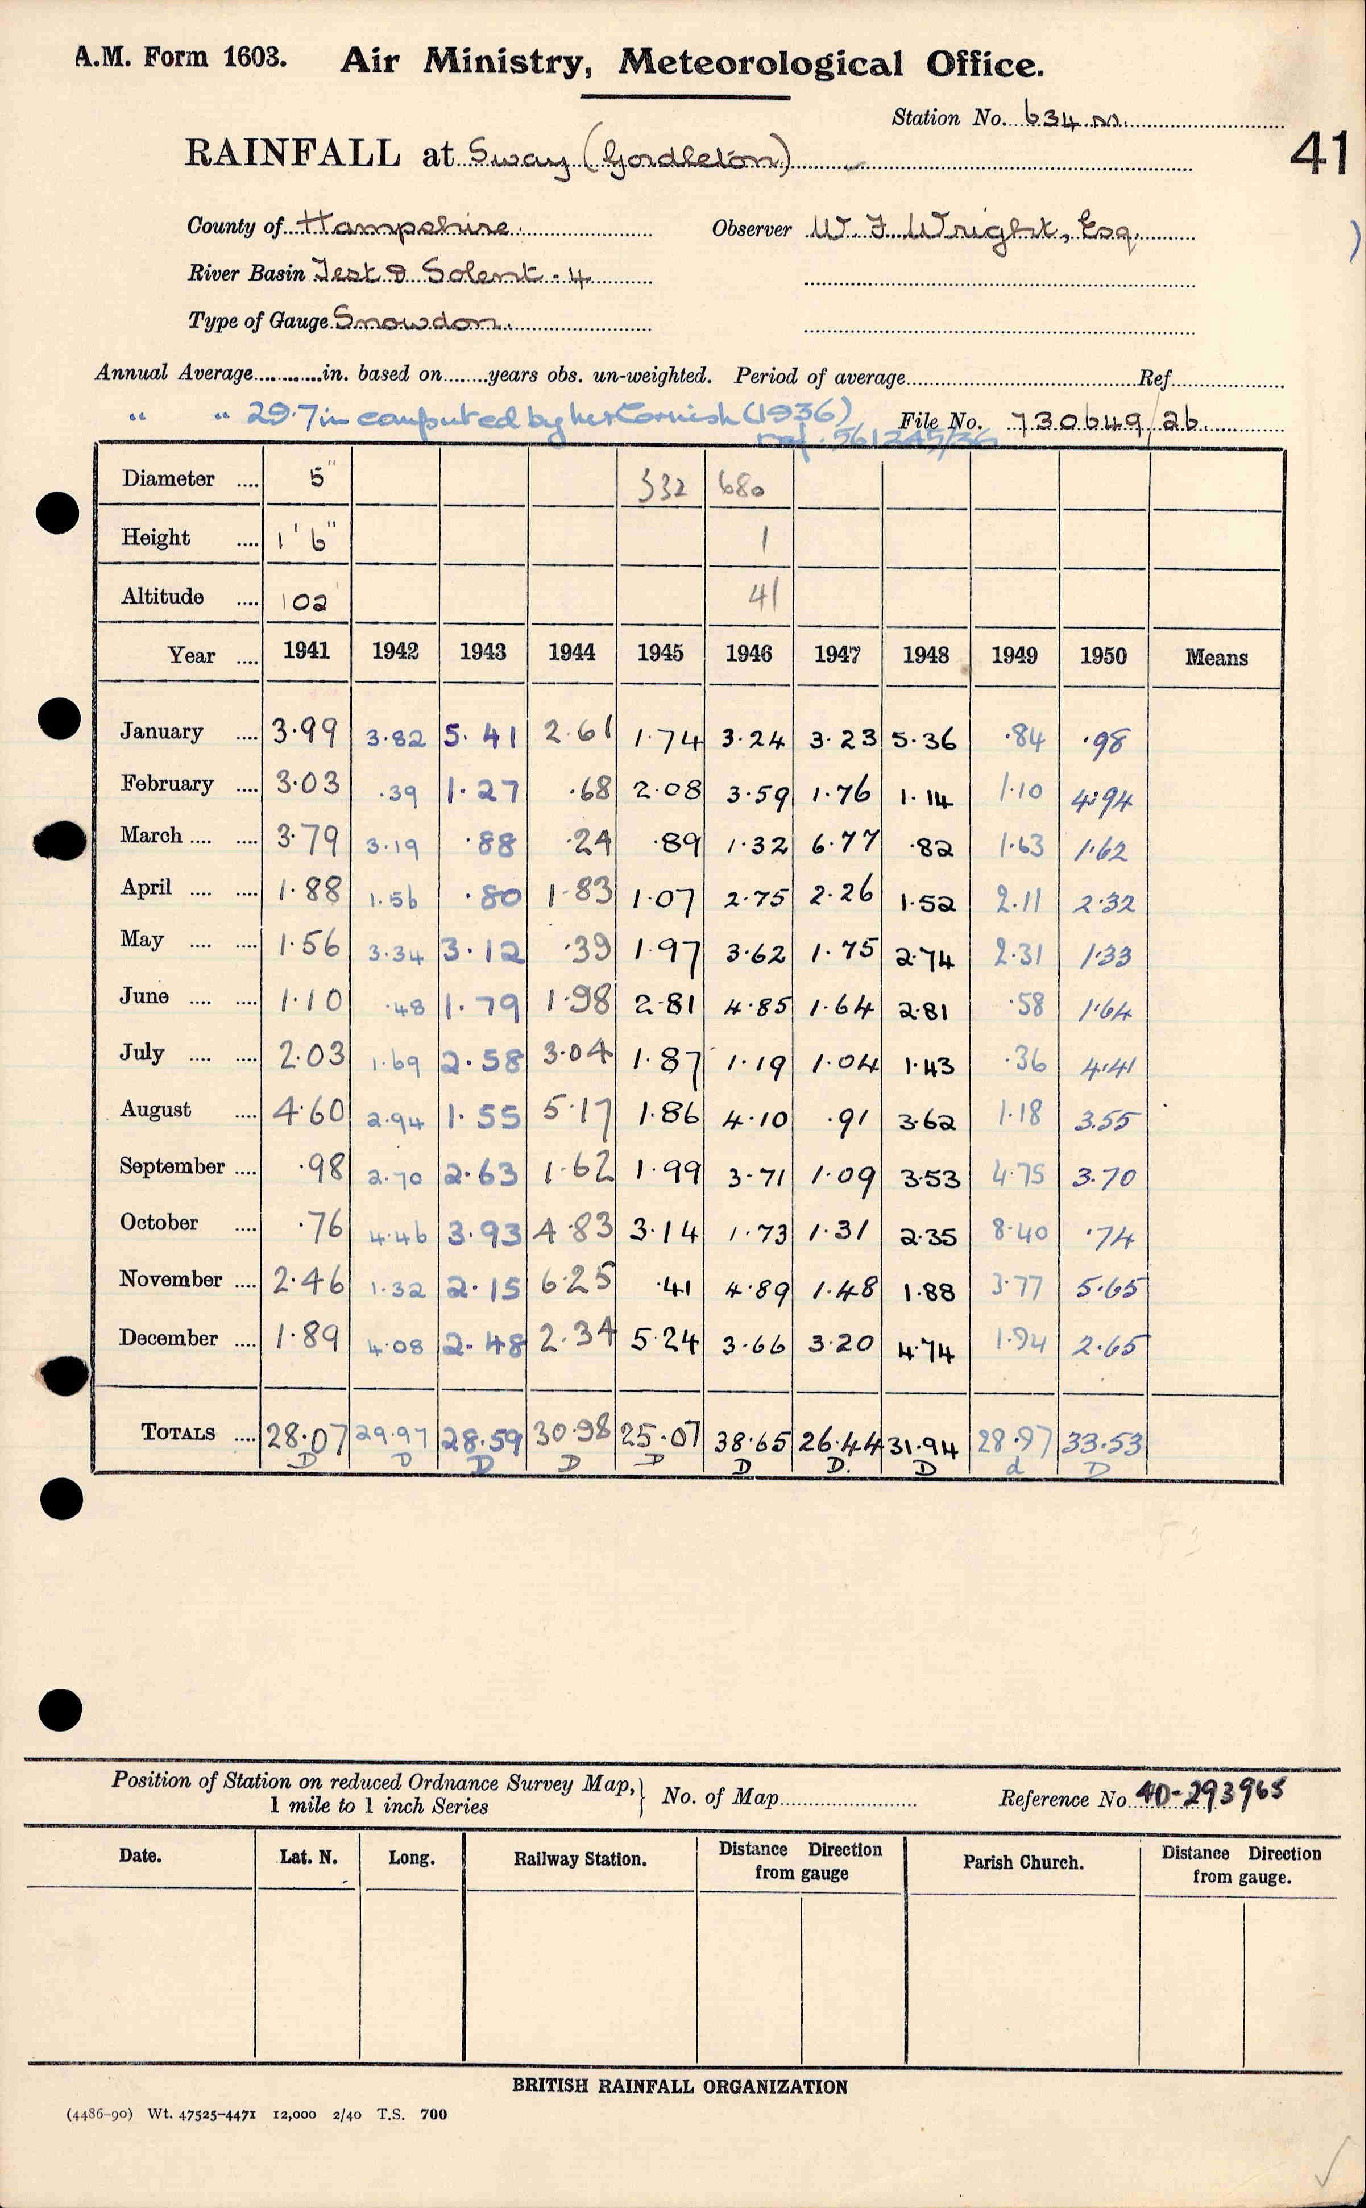 A.M. Form 1603. Air Ministry, Meteorological Office.
Station No. 634 m.
RAINFALL at Sway (Gordleton)
41
County of Hampshire Observer W. F. Wright, Esq.
River Basin Test & Solent - 4
Type of Gauge Snowdon.
Annual Average............in. based on........years obs. un-weighted. Period of average..............Ref..............
" " 29.7 in computed by her Cornish (1936) File No. 730649/26
ref. 561245/36
Diameter .... 5" 332 680
Height .... 1' 6" 1
Altitude .... 102 41
Year .... 1941 1942 1943 1944 1945 1946 1947 1948 1949 1950 Means
January .... 3.99 3.82 5.41 2.61 1.74 3.24 3.23 5.36 .84 .98
February .... 3.03 .39 1.27 .68 2.08 3.59 1.76 1.14 1.10 4.94
March .... .... 3.79 3.19 .88 .24 .89 1.32 6.77 .82 1.63 1.62
April .... .... 1.88 1.56 .80 1.83 1.07 2.75 2.26 1.52 2.11 2.32
May .... .... 1.56 3.34 3.12 .39 1.97 3.62 1.75 2.74 2.31 1.33
June .... .... 1.10 .48 1.79 1.98 2.81 4.85 1.64 2.81 .58 1.64
July .... .... 2.03 1.69 2.58 3.04 1.87 1.19 1.04 1.43 .36 4.41
August .... 4.60 2.94 1.55 5.17 1.86 4.10 .91 3.62 1.18 3.55
September .... .98 2.70 2.63 1.62 1.99 3.71 1.09 3.53 4.75 3.70
October .... .76 4.46 3.93 4.83 3.14 1.73 1.31 2.35 8.40 .74
November .... 2.46 1.32 2.15 6.25 .41 4.89 1.48 1.88 3.77 5.65
December .... 1.89 4.08 2.48 2.34 5.24 3.66 3.20 4.74 1.94 2.65
TOTALS .... 28.07 29.97 28.59 30.98 25.07 38.65 26.44 31.94 28.97 33.53
D D D D D D D. D d D
Position of Station on reduced Ordnance Survey Map, } No. of Map.............. Reference No. 40-293965
1 mile to 1 inch Series
Date. Lat. N. Long. Railway Station. Distance Direction from gauge Parish Church. Distance Direction from gauge.
BRITISH RAINFALL ORGANIZATION
(4486-90) Wt. 47525-4471 12,000 2/40 T.S. 700